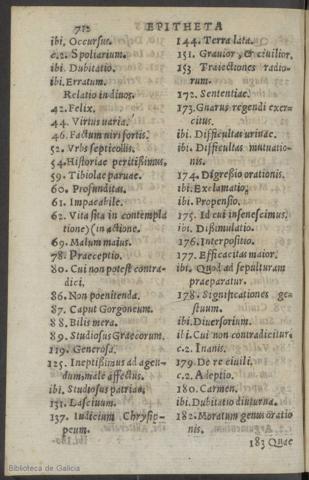 712 EPITHETA
ibi. Occursus.
c.2. Spoliarium.
ibi. Dubitatio.
ibi. Erratum.
Relatio in diuos.
42. Felix.
44. Virtus uaria.
46. Factum uiri fortis.
52. Vrbs septicollis.
54. Historiae peritißimus.
59. Tibiolae paruae.
60. Profunditas.
61. Implacabile.
62. Vita sita in contempla
tione) (in actione.
69. Malum maius.
78. Praeceptio.
80. Cui non potest contra-
dici.
86. Non poenitenda.
87. Caput Gorgoneum.
88. Bilis mera.
89. Studiosus Graecorum.
119. Generosa.
125. Ineptißimus ad agen-
dum, male affectus.
ibi. Studiosus patriae,
131. Lasciuum.
137. Iudicium Chrysip-
peum.
144. Terra lata.
151. Grauior, & ciuilior.
153 Traiectiones radio-
rum.
172. Sententiae.
173. Gnarus regendi exer-
citus.
ibi. Difficultas urinae.
ibi. Difficultas mutuatio-
nis.
174. Digreßio orationis.
ibi. Exclamatio.
ibi. Propensio.
175. Id cui insenescimus.
ibi. Dißimulatio.
176. Interpositio.
177. Efficacitas maior.
ibi. Quod ad sepulturam
praeparatur.
178. Significationes ge-
stuum.
ibi. Diuersorium.
ibi. Cui non contradicitur.
c.2. Inanis.
179. De re ciuili.
c.2. Adeptio.
180. Carmen.
ibi. Dubitatio diuturna.
182. Moratum genus oratio
nis.
183 Quae
Biblioteca de Galicia